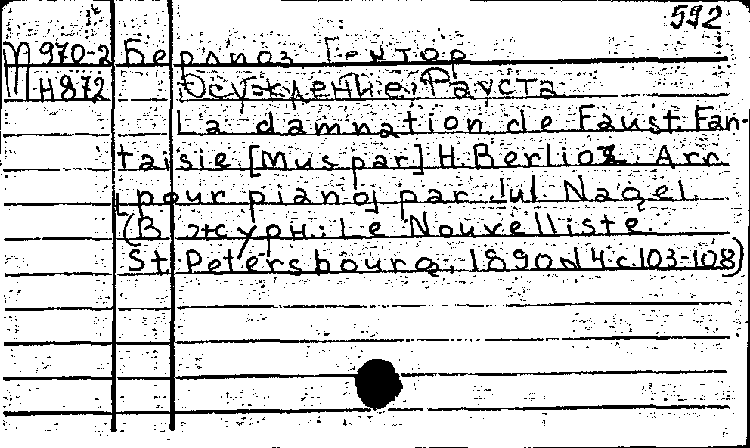 592
П 970-2 Берлиоз Гектор
Н872 Осуждение Фауста
La damnation de Faust. Fan-
taisie [Mus par] H. Berlioz. Arr
[pour piano] par Jul Nagel.
(В журн.: Le Nouvelliste.
St. Petersbourg, 1890 N 4 с 103-108)